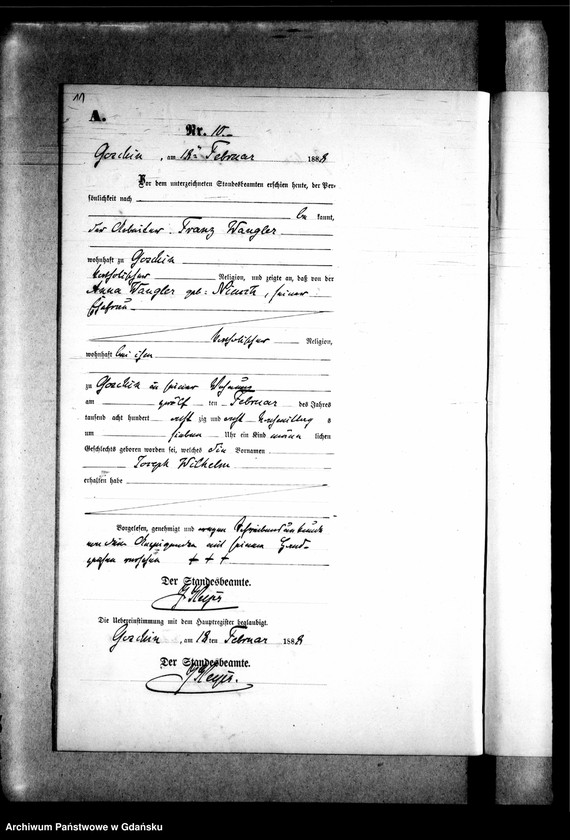 A.
Nr. 10.
Goschin, am 18ten Februar 1888
Vor dem unterzeichneten Standesbeamten erschien heute, der Per-
sönlichkeit nach
be kannt,
der Arbeiter Franz Wangler
wohnhaft zu Goschin
katholischer Religion, und zeigte an, daß von der
Anna Wangler geb: , seiner
Ehefrau
katholischer Religion,
wohnhaft bei ihm
zu Goschin in seiner Wohnung
am zwölf ten Februar des Jahres
tausend acht hundert acht zig und acht Nachmittag s
um sieben Uhr ein Kind männ lichen
Geschlechts geboren worden sei, welches die Vornamen
Joseph Wilhelm
erhalten habe
Vorgelesen, genehmigt und wegen Schreibensunkunde
von dem Anzeigenden mit seinem Hand-
zeichen versehen + + +
Der Standesbeamte.
Die Uebereinstimmung mit dem Hauptregister beglaubigt.
Goschin, am 18ten Februar 1888
Der Standesbeamte.
Archiwum Państwowe w Gdańsku